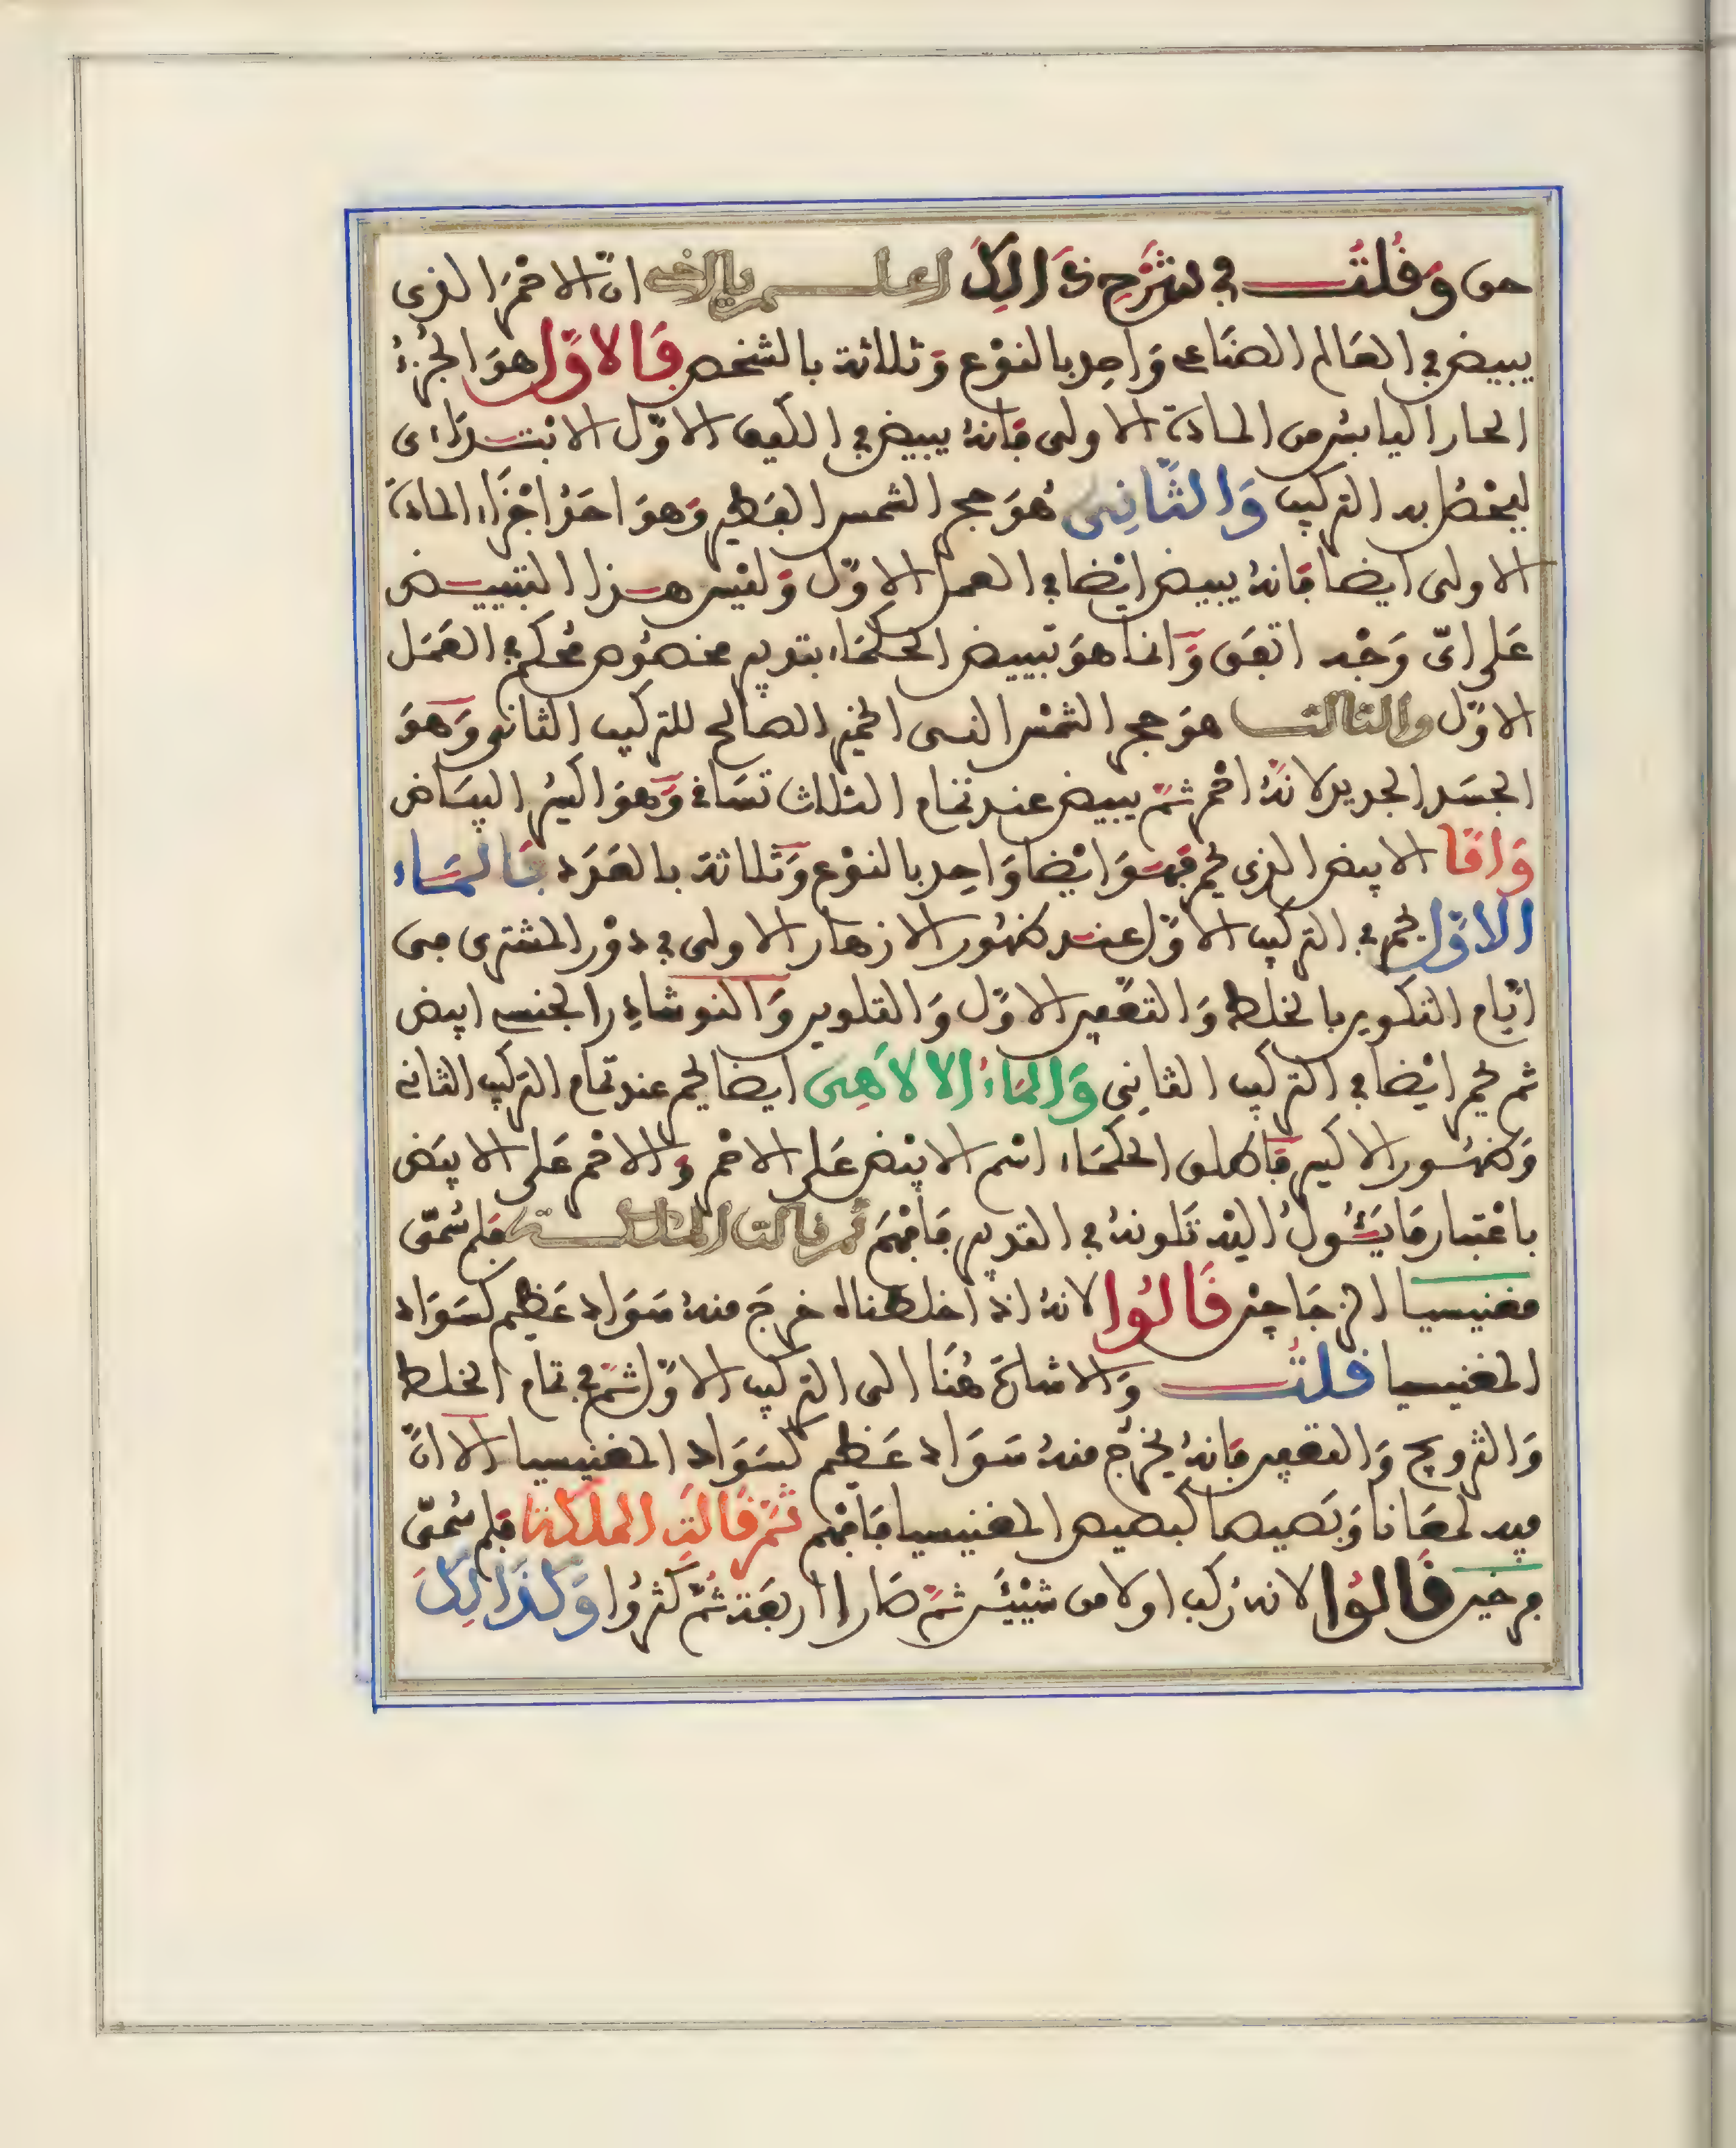 حى وَقُلتُ في شَرْحِ ذَالِكَ اعلم يا اخى انّ الاحْمَرَ الذى
يبيض في العَالم الصنَاعى وَاحِد بالنوْع وَثلاثة بالشخص فَالاوّل هوَ الجُزءُ
الحار اليابسُ من المادة الاولى فانهُ يبيض في الكيف الاوّل الابتدَاءى
ليخصُل به التركيب وَالثَّانِى هُوَ حجر الشمس الفطير وَهوَ احَدُ اجْزَاء المادة
الاولى ايضا فانهُ يبيض ايْضا في العمل الاوّل وَليْس هذا التبييض
عَلى اىّ وَجْه اتفق وَانما هوَ تبييض الحكمَاء بتدبير مخصُوص محُكم في العَمَل
الاوّل والثالث هوَ حجر الشمْس النـسى الخمير الصالح للتركيب الثانى وَهوَ
الجسَد الجديد لانهُ احْمر ثمّ يبيض عند تمَام الثلاث تسَاقى وَهوَ اكسير البيَاض
وَامّا الابيض الذى يحمر فهوَ ايْضا وَاحِد بالنوْع وَثلاثة بالعَدَد فالمَاء
الاوّل يحمر في التركيب الاوّل عند ظهُور الازهار الاولى في دوْر المشترى من
ايّام التكوير بالخلط وَالتعْفير الاوّل وَالتلوير وَالنوشادِر الجنسى ابيض
ثم يحمر ايْضا في التركيب الثانِى وَالمَاءُ الالاهِى ايضا يحمر عند تمام التركيب الثانى
وَظهُور الاكسير فاطلق الحكمَاء اسْم الابيْض عَلى الاحْمر وَالاحْمر عَلى الابيَض
باعْتبار مَا يَئُولُ اليْه تلونهُ في التدبير فافهَم ثم قالت الملكة فلم سُمّى
مغنيسيا الزجَاجِين قَالُوا لانهُ اذا خلطناه خرجَ منهُ سَوَاد عَظيم كسَوَاد
المغنيسيا قلتُ وَالاشارة هُنَا الى التركيب الاوّل ثمّ في تمام الخلط
وَالتزويج وَالتعفير فانهُ يخرُج منهُ سَوَاد عَظيم كسَوَاد المغنيسيا الا انّ
فيه لمعَانا وَبَصيصا كبصيص المغنيسيا فافهم ثمّ قالتِ الملكة فلم سُمّى
مرخير قَالُوا لانهُ ركب اولا من شيْئَيْن ثمّ صَارا اربعَة ثمّ كثرُوا وَكذَالِكَ